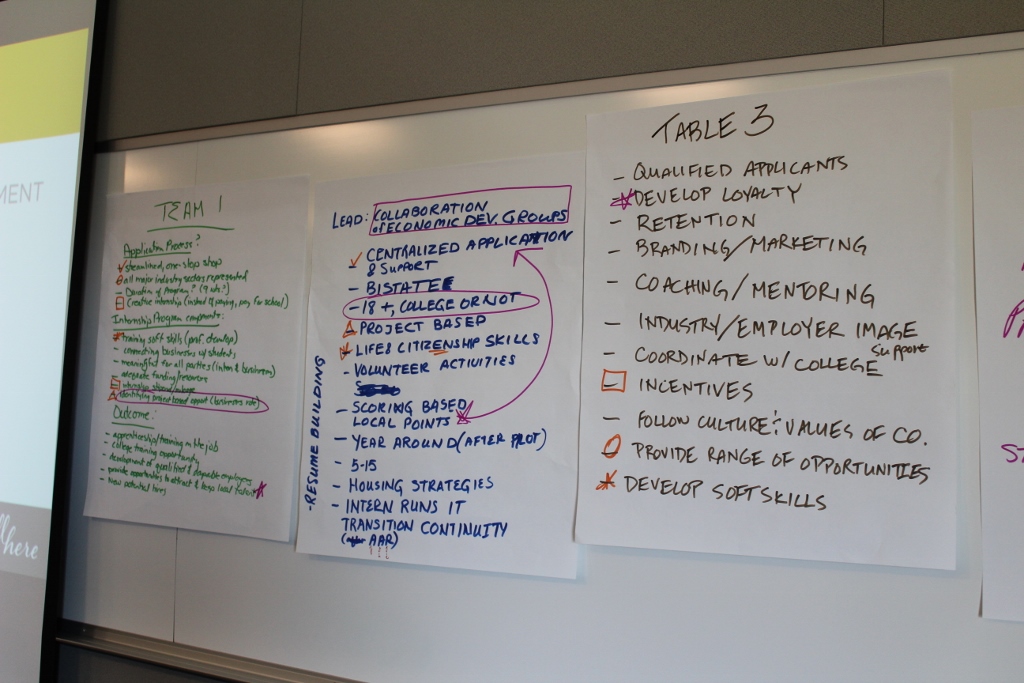 MENT
here
TEAM 1
Application Process?
streamlined, one-stop shop
all major industry sectors represented
- Duration of Program? (9 wks?)
Creative internship (instead of paying, pay for school)
Internship Program components:
training soft skills
- connecting businesses w/ students
- meaningful for all parties (intern & business)
- adequate funding/resources
identifying project based opport (business role)
Outcome:
- apprenticeship/training on the job
- college training opportunity
- development of qualified & employees
- provide opportunities to attract & keep local talent
- New potential hires
LEAD: COLLABORATION
of ECONOMIC DEV. GROUPS
- CENTRALIZED APPLICATION
& SUPPORT
- BISTATE
- 18+, COLLEGE OR NOT
PROJECT BASED
- LIFE & CITIZENSHIP SKILLS
- VOLUNTEER ACTIVITIES
- SCORING BASED
LOCAL POINTS
- YEAR AROUND (AFTER PILOT)
- 5-15
- HOUSING STRATEGIES
- INTERN RUNS IT
TRANSITION CONTINUITY
(AAR)
- RESUME BUILDING
TABLE 3
- QUALIFIED APPLICANTS
- DEVELOP LOYALTY
- RETENTION
- BRANDING/MARKETING
- COACHING/MENTORING
- INDUSTRY/EMPLOYER IMAGE
- COORDINATE W/ COLLEGE Support
- INCENTIVES
- FOLLOW CULTURE & VALUES OF CO.
- PROVIDE RANGE OF OPPORTUNITIES
- DEVELOP SOFT SKILLS